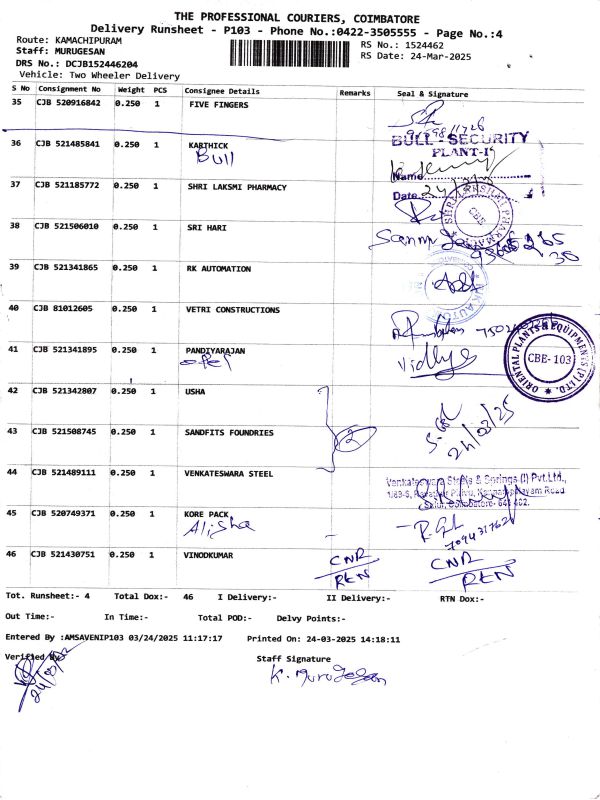 THE PROFESSIONAL COURIERS, COIMBATORE
Delivery Runsheet - P103 - Phone No.:0422-3505555 - Page No.:4
Route: KAMACHIPURAM
RS No.: 1524462
Staff: MURUGESAN
RS Date: 24-Mar-2025
DRS No.: DCJB152446204
Vehicle: Two Wheeler Delivery
S No Consignment No Weight PCS Consignee Details Remarks Seal & Signature
35 CJB 520916842 0.250 1 FIVE FINGERS
36 CJB 521485841 0.250 1 KARTHICK
Bull
BULL - SECURITY
PLANT-I
Name
Date 24
37 CJB 521185772 0.250 1 SHRI LAKSMI PHARMACY
CBE
38 CJB 521506010 0.250 1 SRI HARI
39 CJB 521341865 0.250 1 RK AUTOMATION
40 CJB 81012605 0.250 1 VETRI CONSTRUCTIONS
41 CJB 521341895 0.250 1 PANDIYARAJAN
Vidhya
ORIENTAL PLANTS & EQUIPMENTS (P) LTD.
CBE-103
42 CJB 521342807 0.250 1 USHA
2
24/03/25
43 CJB 521508745 0.250 1 SANDFITS FOUNDRIES
44 CJB 521489111 0.250 1 VENKATESWARA STEEL
Venkateswara Steels & Springs (I) Pvt.Ltd.,
45 CJB 520749371 0.250 1 KORE PACK
Alisha
46 CJB 521430751 0.250 1 VINODKUMAR
CNR
REN
CNR
REN
Tot. Runsheet:- 4 Total Dox:- 46 I Delivery:- II Delivery:- RTN Dox:-
Out Time:- In Time:- Total POD:- Delvy Points:-
Entered By :AMSAVENIP103 03/24/2025 11:17:17 Printed On: 24-03-2025 14:18:11
Verified By
Staff Signature
K. Murugesan